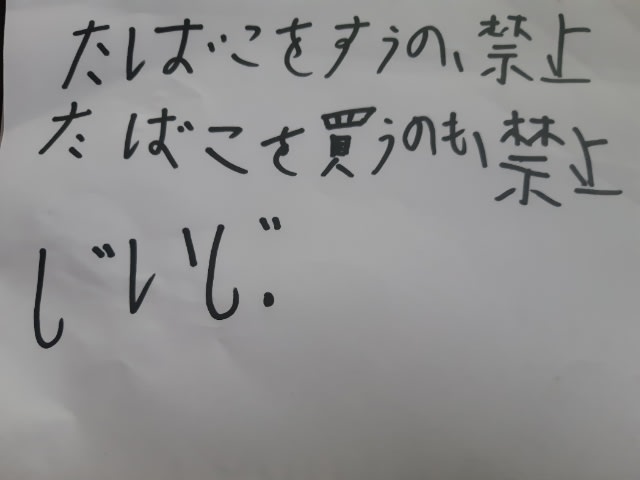 たばこをすうの、禁止
たばこを買うのも、禁止
じいじ.